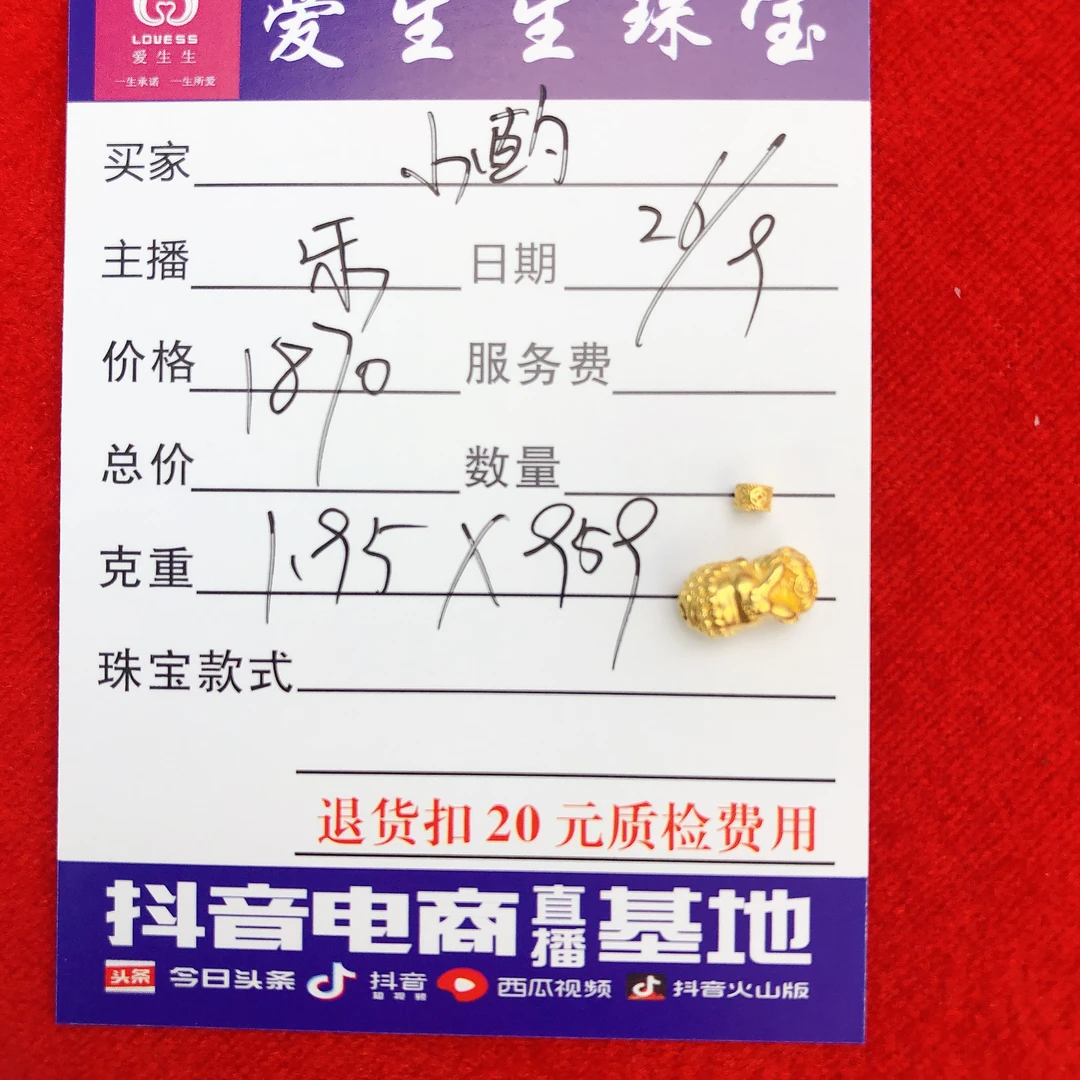 LOVESS
爱生生
一生承诺 一生所爱
爱生生珠宝
买家 小
主播 乐 日期 26/9
价格 1870 服务费
总价 数量
克重 1.95 X 959
珠宝款式
退货扣20元质检费用
抖音电商直播基地
头条 今日头条 抖音 短视频 西瓜视频 抖音火山版